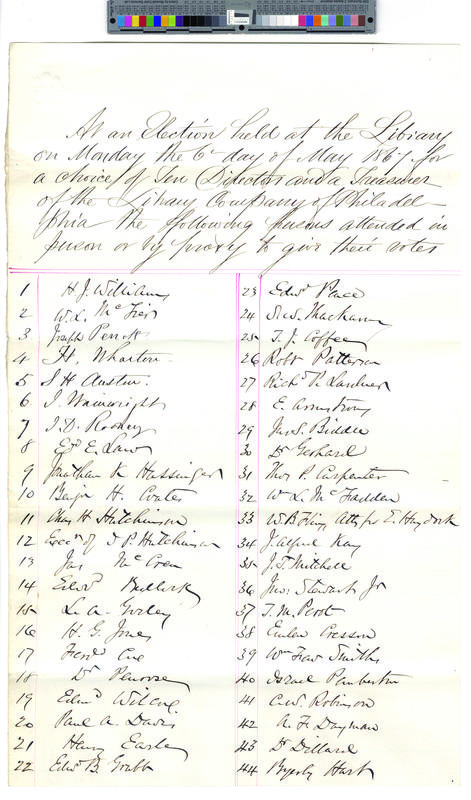 At an Election held at the Library
on Monday the 6th day of May 1867 for
a choice of Ten Directors and a Treasurer
of the Library Company of Philadel-
phia the following persons attended in
person or by proxy to give their votes
1 H. J. Williams
2 W. L.
3 Joseph
4 H. Wharton
5 S H Austin
6 J. Wainwright
7 J. D. Rodney
8 E. Law
9 Jonathan K Hassinger
10 Benj. H. Coates
11 Chas H Hutchinson
12 Excr of I P Hutchinson
13 Jas
14 Edwd Bullock
15 L. A. Godey
16 H. G. Jones
17 Ferd
18 Dr Penrose
19 Edmd Wilcox
20 Paul A. Davis
21 Henry Earle
22 Edw. B. Grubb
23 Edwd Pace
24
25 T. J. Coffee
26 Robt Patterson
27 Richd P. Lardner
28 E. Armstrong
29 Jno. S. Biddle
30 Dr Gerhard
31 Thos P. Carpenter
32 W L McFadden
33 W B Atty for E Haydock
34 J. Alfred Kay
35 J. T. Mitchell
36 Jno: Stewart Jr
37 T. M. Perot
38 Emlen Cresson
39 Wm Smith
40 Israel Pemberton
41 C. W. Robinson
42 A. F. Dayman
43 Dr Dillard
44 Byerly Hart